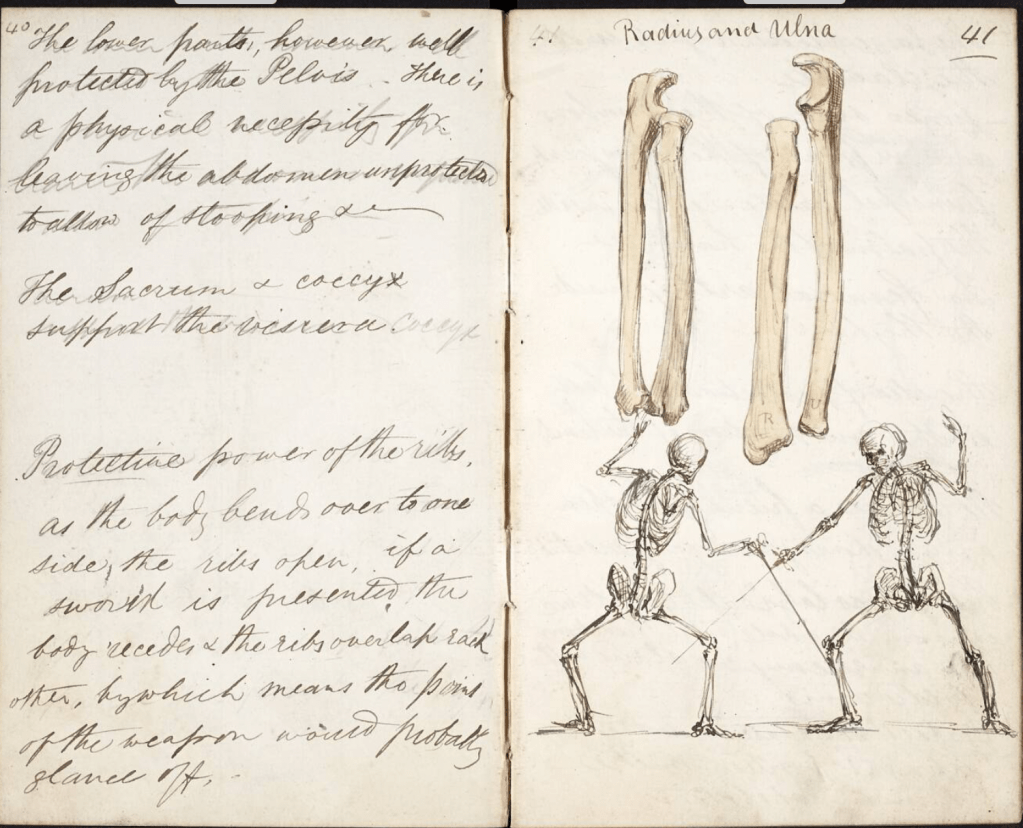 40
The lower parts, however, well
protected by the Pelvis. There is
a physical necessity for
leaving the abdomen unprotected
to allow of stooping &c
The Sacrum & coccyx
support the viscera coccyx
Protective power of the ribs.
as the body bends over to one
side, the ribs open, if a
sword is presented, the
body recedes & the ribs overlap each
other, by which means the point
of the weapon would probably
glance off.
Radius and Ulna
41
R
U